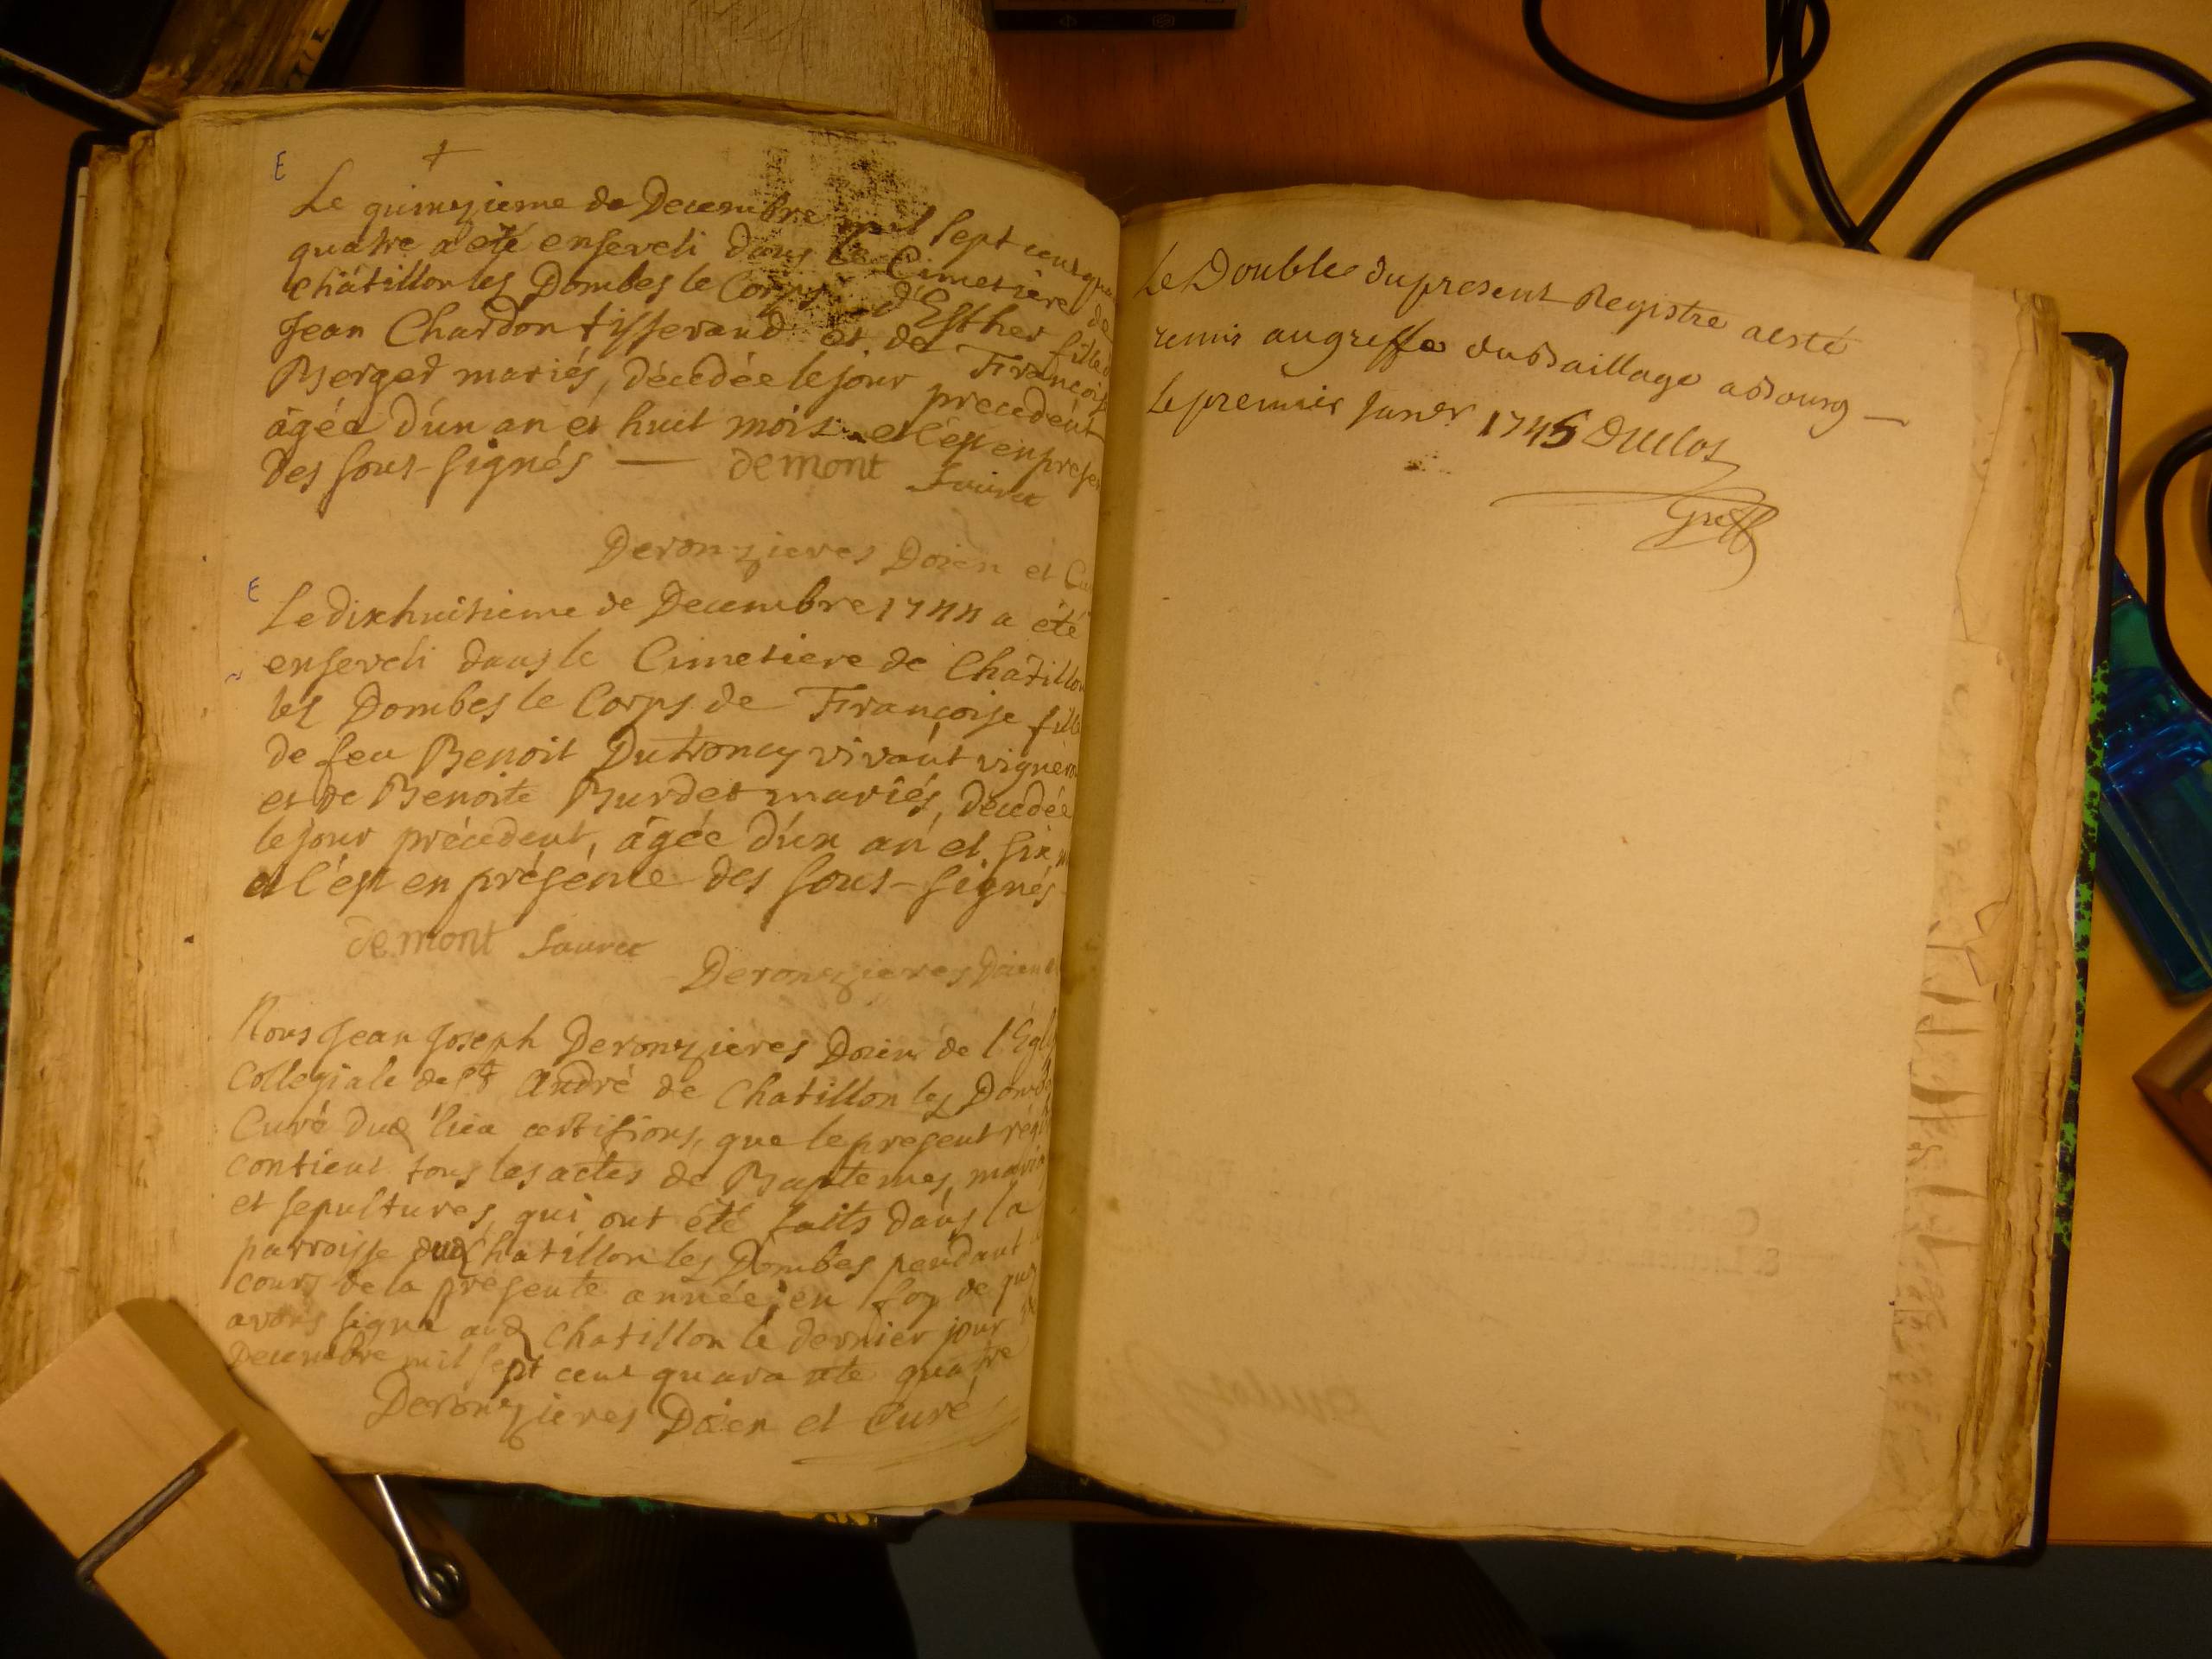 E
Le quinzieme de Decembre mil sept cent qua
quatre a été enseveli dans le Cimetière de
Châtillon les Dombes le Corps d'Esther fille de
Jean Chardon tisserand et de Françoise
Berger mariés, décédée le jour precedent
âgée d'un an et huit mois et c'est en presen
des sous-signés — demont Sauret
Deronzieres Doien et Cu
E
Le dixhuitieme de Decembre 1744 a été
enseveli dans le Cimetiere de Châtillon
les Dombes le Corps de Françoise fille
de feu Benoit Dutroncy vivant vigneron
et de Benoite Burdet mariés, décedée
le jour précedent, âgée d'un an et six m
et c'est en présence des sous-signés
demont Sauret
Deronzieres Doien e
Nous Jean Joseph Deronzieres Doien de l'Egl
Collegiale de St André de Chatillon les Domb
Curé dud lieu certifions, que le present régi
contient tous les actes de Baptemes, maria
et sepultures, qui ont été faits dans la
parroisse dud Chatillon les Dombes pendant
cours de la presente année; en foy de quoy
avons signé aud Chatillon le dernier jour de
Decembre mil sept cent quarante quatre
Deronzieres Doien et Curé
Le Double du present Registre a esté
remis au greffe du Baillage a Bourg —
le premier Janer 1745 Duclos
Greff